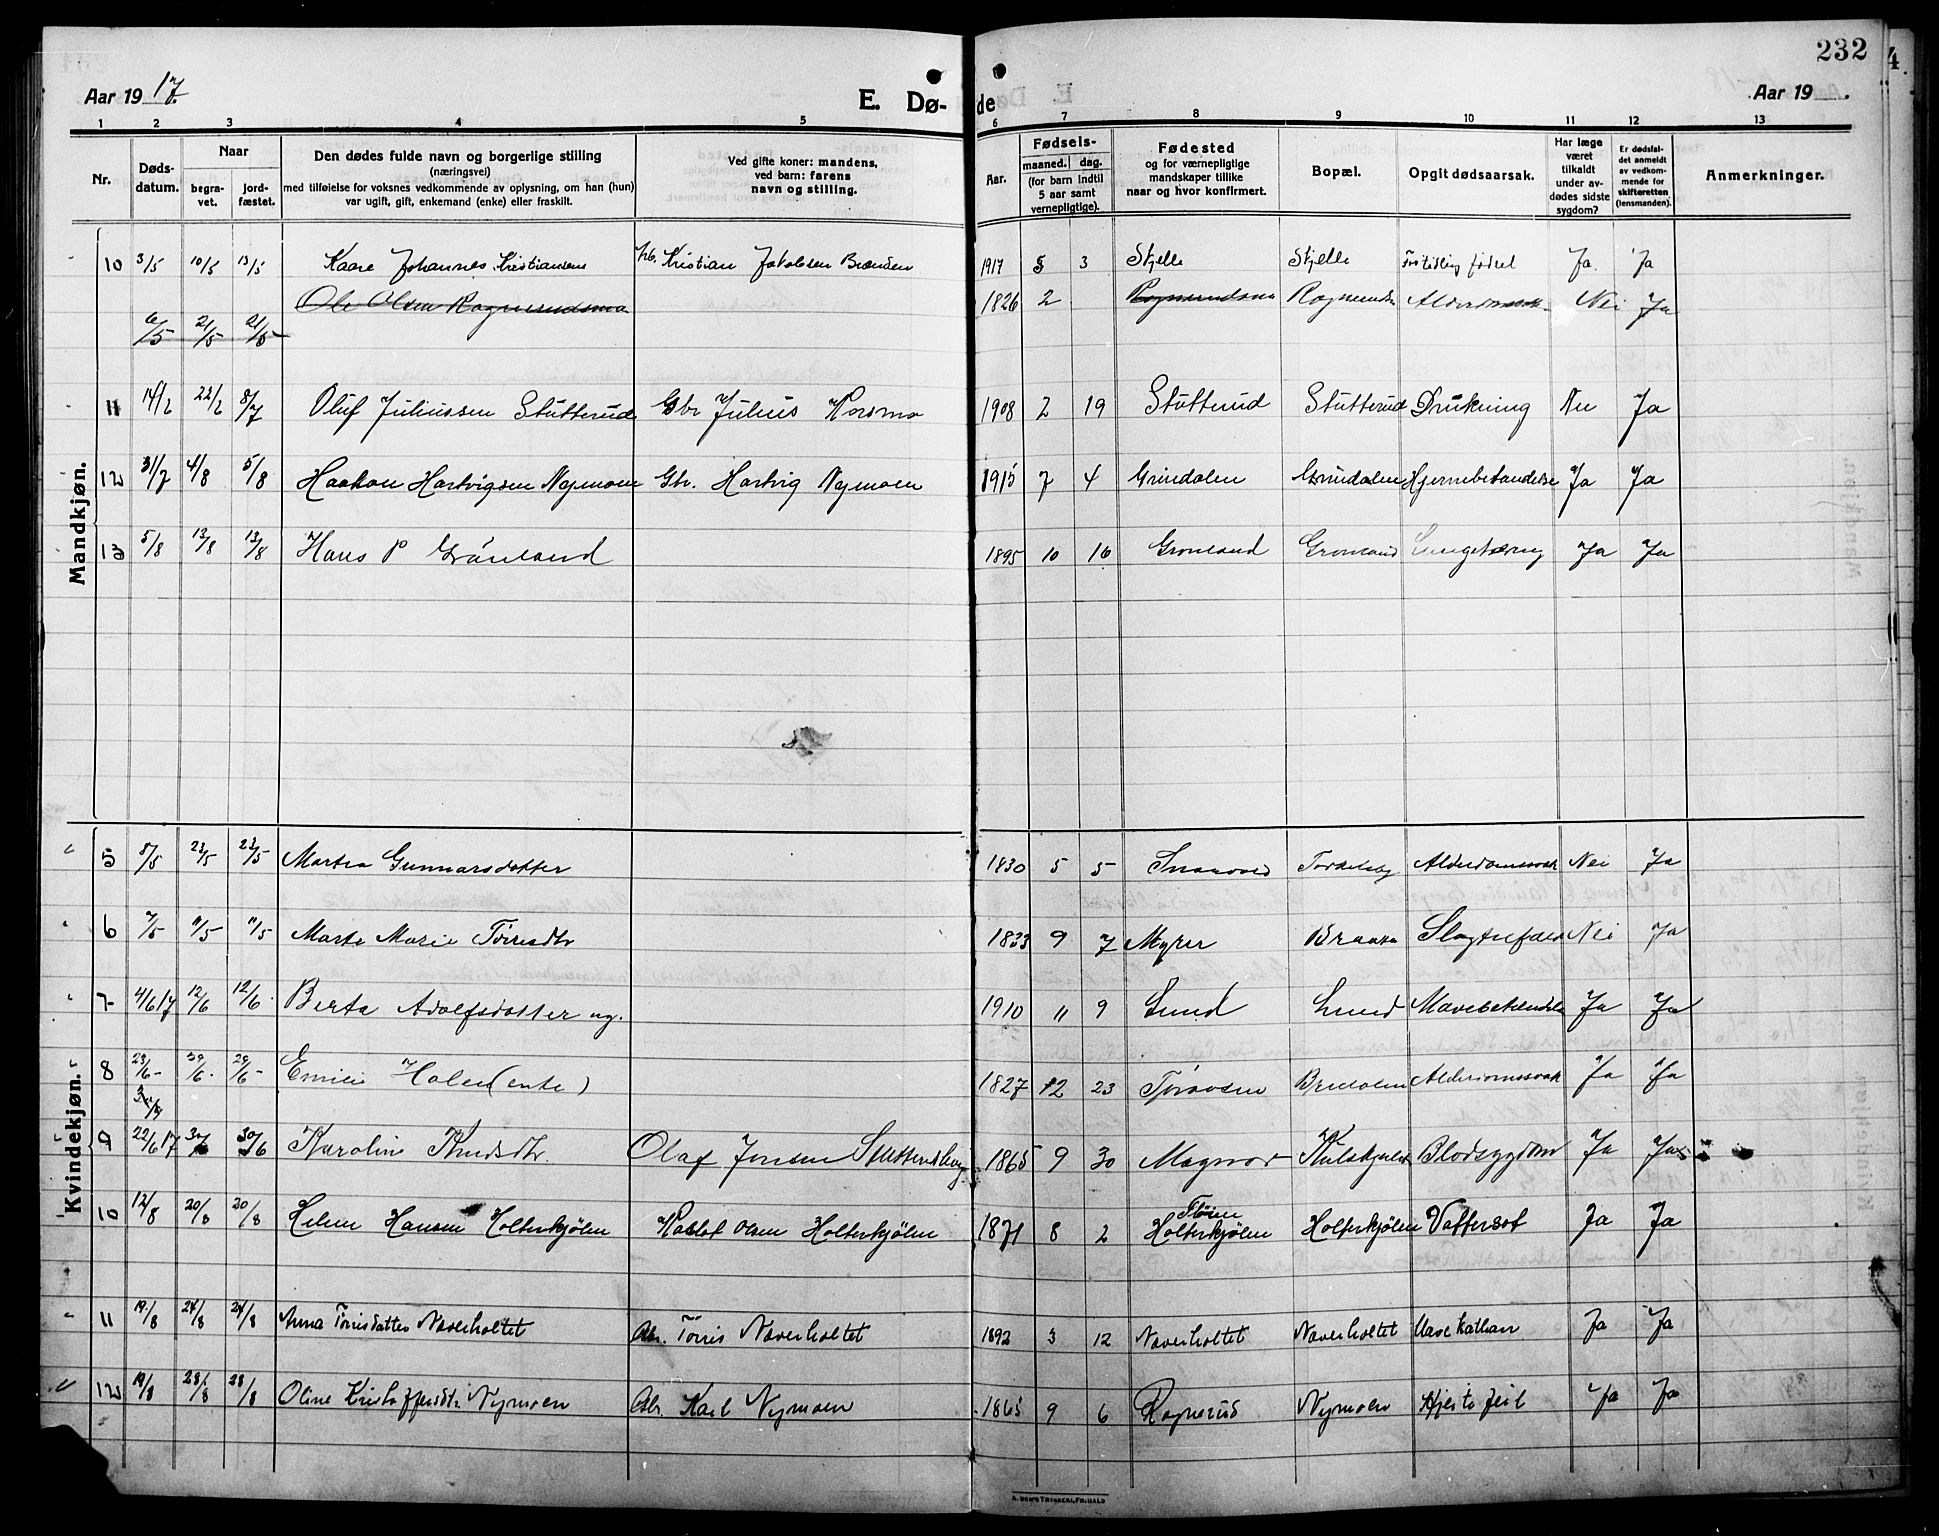 232
Aar 19 17.
E. Dø-
de
Aar 19
1 2 3 4 5 6 7 8 9 10 11 12 13
Nr.
Døds-
datum.
Naar
begra-
vet.
jord-
fæstet.
Den dødes fulde navn og borgerlige stilling
(næringsvei)
med tilføielse for voksnes vedkommende av oplysning, om han (hun)
var ugift, gift, enkemand (enke) eller fraskilt.
Ved gifte koner: mandens,
ved barn: farens
navn og stilling.
Aar.
Fødsels-
maaned. dag.
(for barn indtil
5 aar samt
vernepligtige).
Fødested
og for værnepligtige
mandskaper tillike
naar og hvor konfirmert.
Bopæl.
Opgit dødsaarsak.
Har læge
været
tilkaldt
under av-
dødes sidste
sygdom?
Er dødsfal-
det anmeldt
av vedkom-
mende for
skifteretten
(lensmanden).
Anmerkninger.
Mandkjøn.
10 3/5 10/5 13/5 Kaare Johannes Kristiansen Kristian Jakobsen Brænden 1917 5 3 Skjelle Skjelle Fortidlig fødsel Ja Ja
Ole Olsen Rognerudsmo 1826 2 Nei Ja
6/5 21/5 21/5
11 14/6 22/6 8/7 Oluf Juliussen Stutterud Gbr Julius Korsmo 1908 2 19 Stutterud Stutterud Drukning Nei Ja
12 31/7 4/8 5/8 Haakon Hartvigsen Nymoen Gbr. Hartvig Nymoen 1915 7 4 Grindalen Grindalen Hjernebetændelse Ja Ja
13 5/8 13/8 13/8 Hans P Grönland 1895 10 16 Gronland Gronland Lungetæring Ja Ja
Kvindekjøn.
5 8/5 23/5 23/5 Martea Gunnarsdotter 1830 5 5 Alderdomssvak Nei Ja
6 7/5 11/5 11/5 Marte Marie Törresdtr 1833 9 7 Myrer Braaten Nei Ja
7 4/6 17 12/6 12/6 Berta Adolfsdotter ug. 1910 11 9 Lund Lund Mavebetændelse Ja Ja
8 23/6 29/6 29/6 Emilie Holen (enke) 1827 12 23 Alderdomssvak Ja Ja
9 22/6 17 30/6 30/6 Karoline Knudsdtr. Olaf Jensen Stutterudberg 1865 9 30 Magnor Blodsygdom Ja Ja
10 12/8 20/8 20/8 Helene Hansen Holterkjölen Olsen Holterkjölen 1871 8 2 Holterkjölen Holterkjölen Vattersot Ja Ja
11 19/8 24/8 24/8 Anna Törrisdatter Naverholtet Törris Naverholtet 1892 3 12 Naverholtet Naverholtet Mavekathar Ja Ja
12 19/8 28/8 28/8 Oline Kristoffersdtr Nymoen Karl Nymoen 1865 9 6 Rognerud Nymoen Hjerte feil Ja Ja